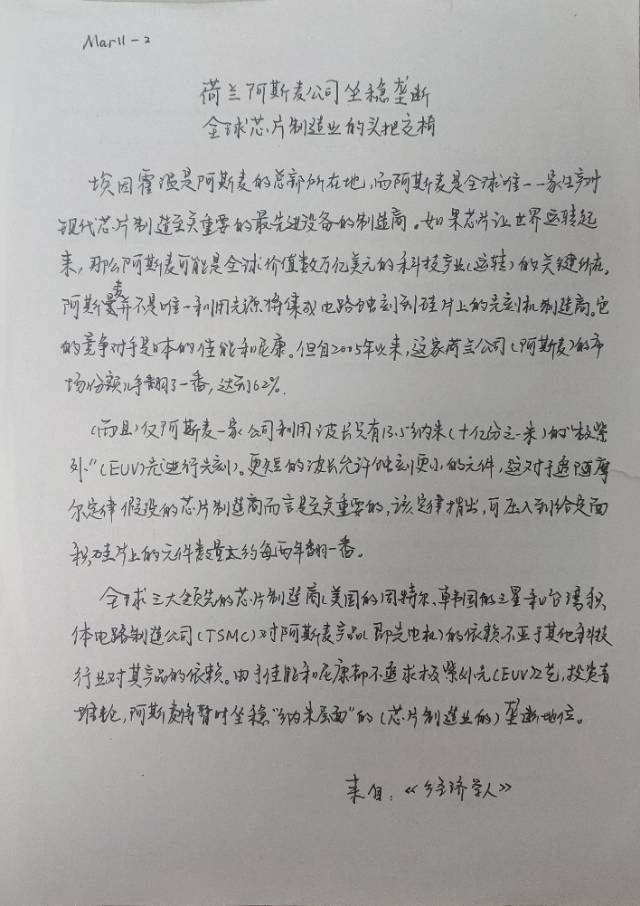 Mar11-2
荷兰阿斯麦公司坐稳垄断
全球芯片制造业的头把交椅
埃因霍温是阿斯麦的总部所在地,而阿斯麦是全球唯一一家生产对
现代芯片制造至关重要的最先进设备的制造商。如果芯片让世界运转起
来,那么阿斯麦可能是全球价值数万亿美元的科技产业(运转)的关键所在。
阿斯麦并不是唯一利用光源将集成电路蚀刻到硅片上的光刻机制造商。它
的竞争对手是日本的佳能和尼康。但自2005年以来,这家荷兰公司(阿斯麦)的市
场份额几乎翻了一番,达到62%。
(而且)仅阿斯麦一家公司利用波长只有13.5纳米(十亿分之一米)的“极紫
外”(EUV)光进行光刻)。更短的波长允许蚀刻更小的元件,这对于追随摩
尔定律假设的芯片制造商而言是至关重要的,该定律指出,可压入到给定面
积硅片上的元件数量大约每两年翻一番。
全球三大领先的芯片制造商(美国的因特尔、韩国的三星和台湾积
体电路制造公司(TSMC)对阿斯麦产品(即光电机)的依赖不亚于其他科技
行业对其产品的依赖。由于佳能和尼康都不追求极紫外光(EUV)工艺,投资者
推论,阿斯麦将暂时坐稳“纳米层面”的(芯片制造业的)垄断地位。
来自:《经济学人》